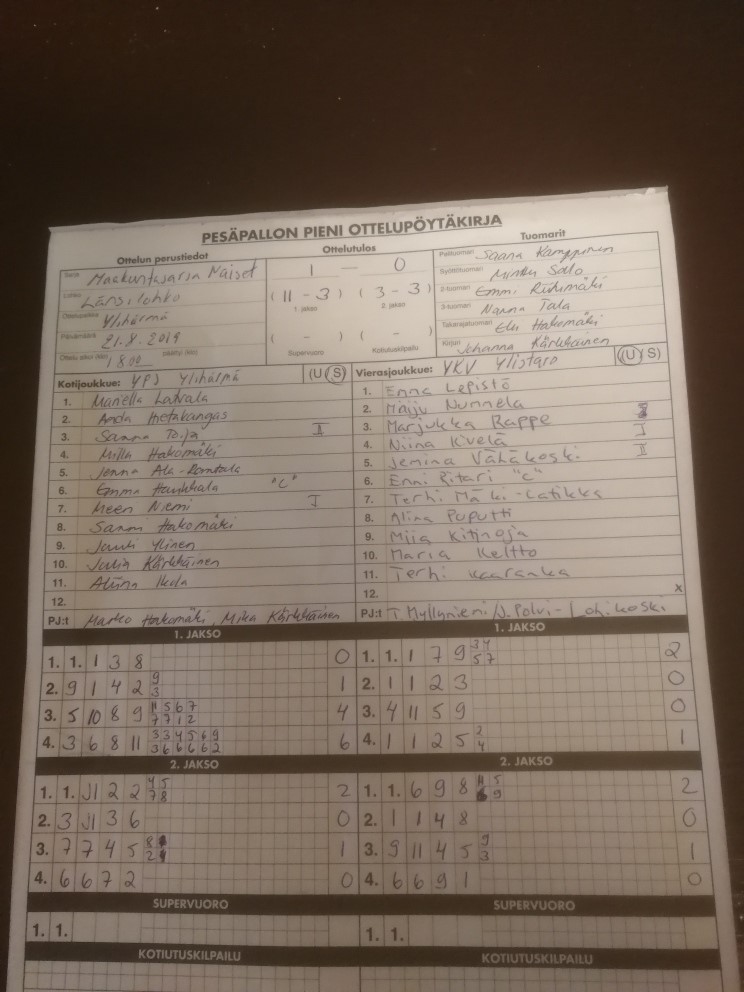 PESÄPALLON PIENI OTTELUPÖYTÄKIRJA
Ottelun perustiedot Ottelutulos Tuomarit
Sarja Maakuntasarja Naiset
Lohko Länsilohko
Ottelupaikka Ylihärmä
Päivämäärä 21.8.2019
Ottelu alkoi (klo) 1800 päättyi (klo)
1 — 0
( 11 - 3 ) ( 3 - 3 )
1. jakso 2. jakso
( - ) ( - )
Supervuoro Kotiutuskilpailu
Pelituomari Saana Kamppinen
Syöttötuomari Minttu Salo
2-tuomari Emmi Riihimäki
3-tuomari Nanna Tala
Takarajatuomari Elli Hakomäki
Kirjuri Johanna Kärkkäinen
Kotijoukkue: YPJ Ylihärmä (U/S)
1. Mariella Latvala
2. Anda Hietakangas
3. Sanna Toija II
4. Milla Hakomäki
5. Jenna Ala-Rantala
6. Emma Haukkala "C"
7. Meen Niemi I
8. Sanni Hakomäki
9. Jauli Ylinen
10. Julia Kärkkäinen
11. Aliina Ikola
12.
PJ:t Marko Hakomäki, Mika Kärkkäinen
Vierasjoukkue: YKV Ylistaro (U/S)
1. Enna Lepistö
2. Maiju Nunnela
3. Marjukka Rappe
4. Niina Kivelä I
5. Jemina Vähäkoski II
6. Enni Ritari "C"
7. Terhi Mäki-Latikka
8. Alina Puputti
9. Miia Kitinoja
10. Maria Keltto
11. Terhi Kaaranka
12. x
PJ:t T. Myllyniemi / J. Polvi-Lohikoski
1. JAKSO
1. 1. 1 3 8 0
2. 9 1 4 2 9 1
3
3. 5 10 8 9 11 5 6 7 4
7 7 1 2
4. 3 6 8 11 3 3 4 5 6 9 6
3 6 6 6 6 2
1. JAKSO
1. 1. 1 7 9 3 4 2
5 7
2. 1 1 2 3 0
3. 4 11 5 9 0
4. 1 1 2 5 2 1
4
2. JAKSO
1. 1. J1 2 2 4 5 2
7 8
2. 3 J1 3 6 0
3. 7 7 4 5 8 1
2
4. 6 6 7 2 0
2. JAKSO
1. 1. 6 9 8 11 5 2
6 9
2. 1 1 4 8 0
3. 9 11 4 5 9 1
3
4. 6 6 9 1 0
SUPERVUORO SUPERVUORO
1. 1. 1. 1.
KOTIUTUSKILPAILU KOTIUTUSKILPAILU